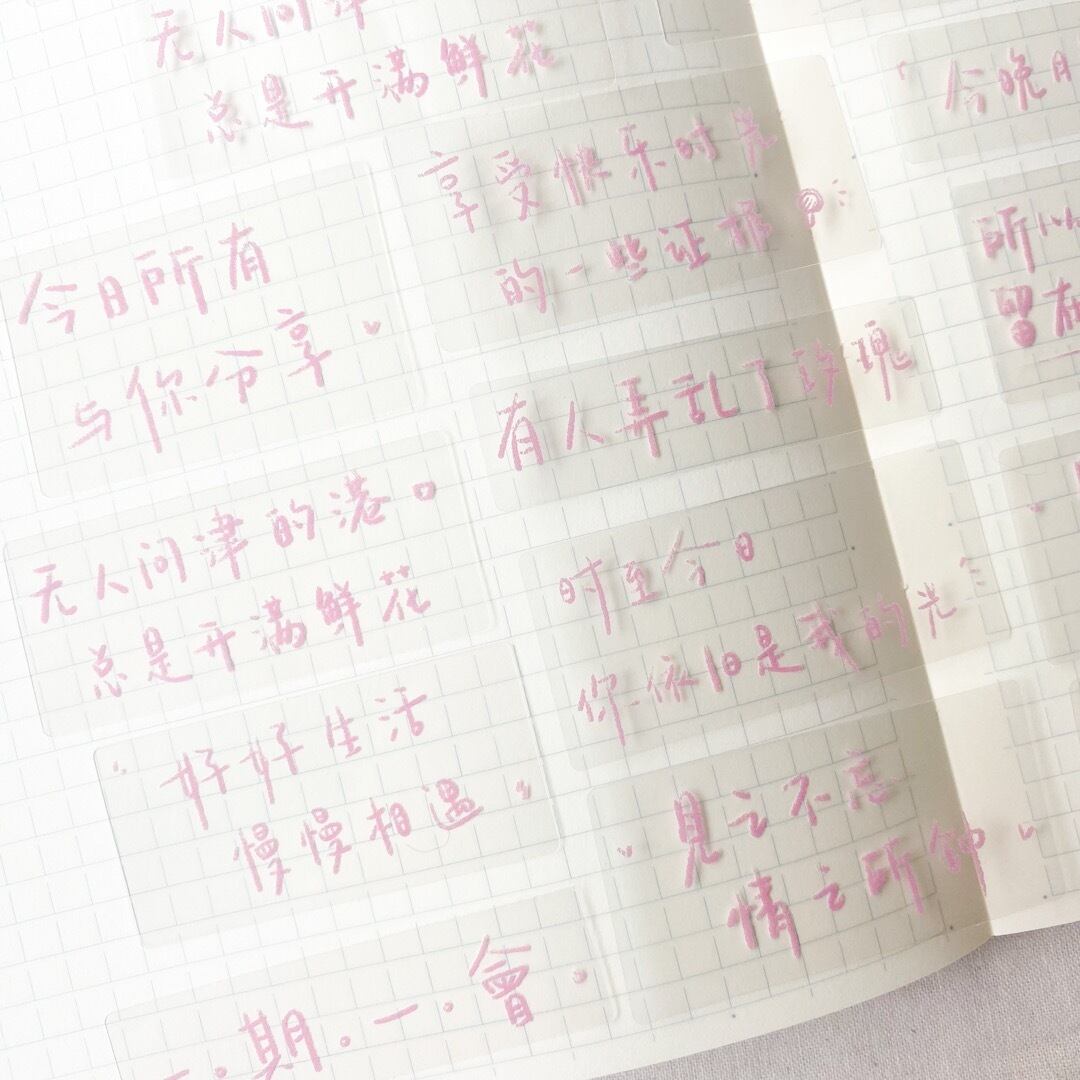 无人问津
总是开满鲜花
享受快乐时光
的一些证据
今日所有
与你分享
有人弄乱了玫瑰
无人问津的港口
总是开满鲜花
时至今日
你依旧是我的光
好好生活
慢慢相遇
見之不忘
情之所钟
一·期·一·會
今晚月
所以
留在